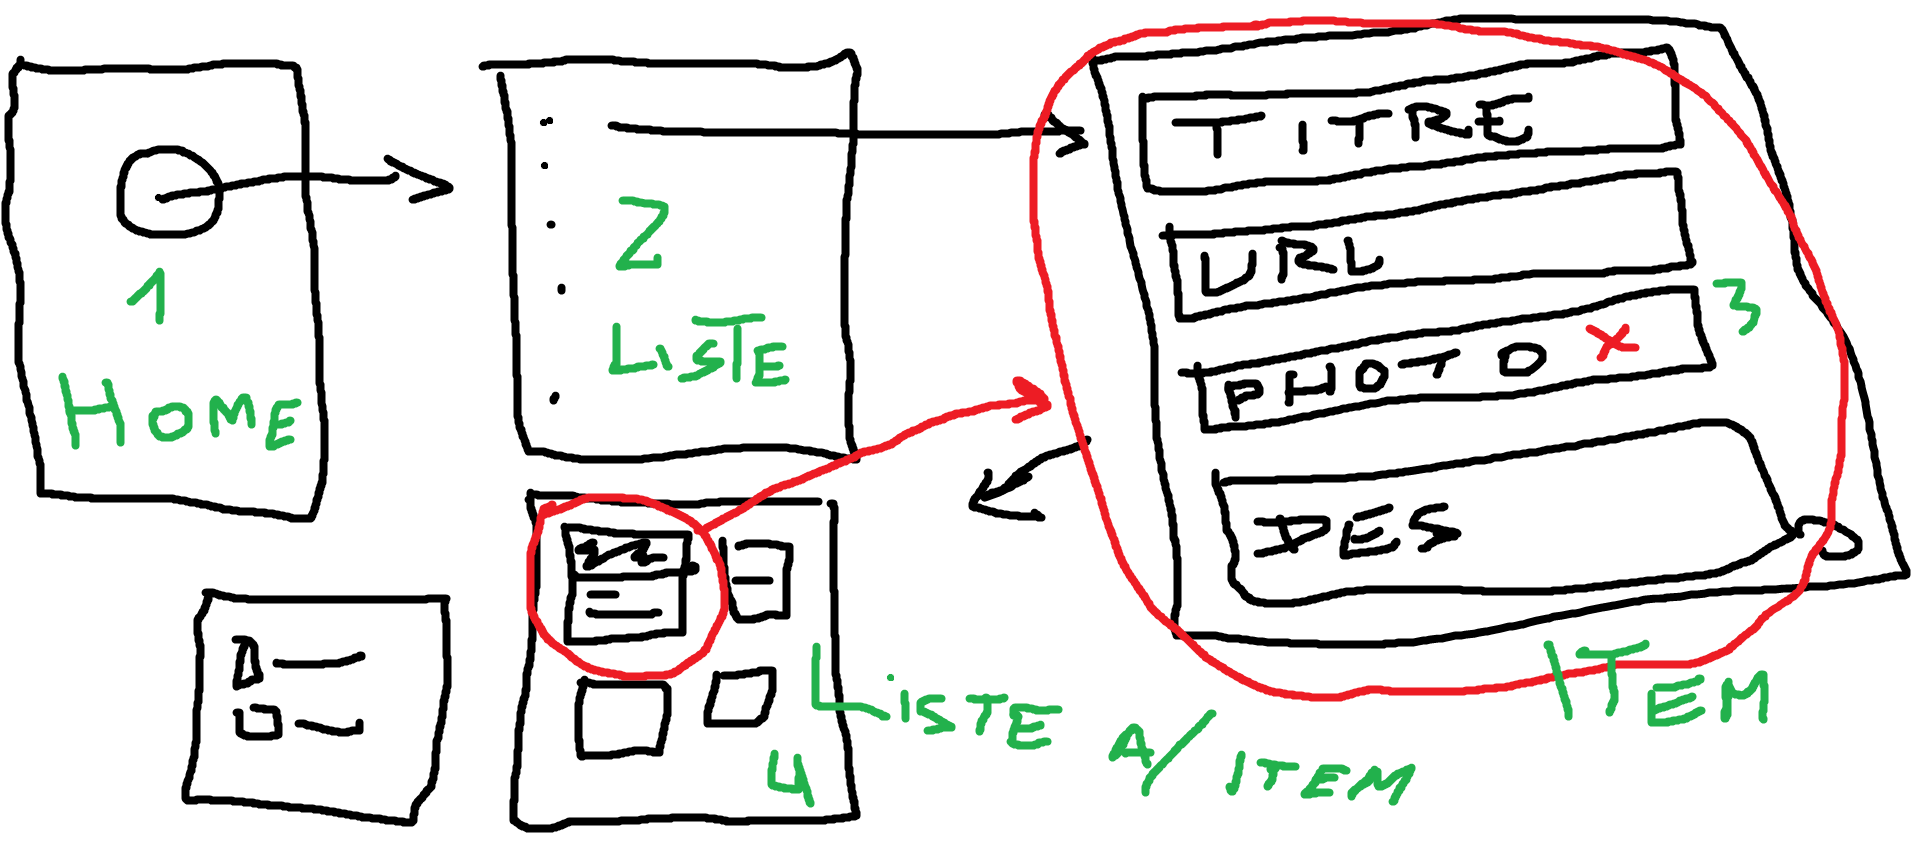 1
HOME
2
LISTE
TITRE
URL
PHOTO X
DES
3
ITEM
4
LISTE A/ITEM